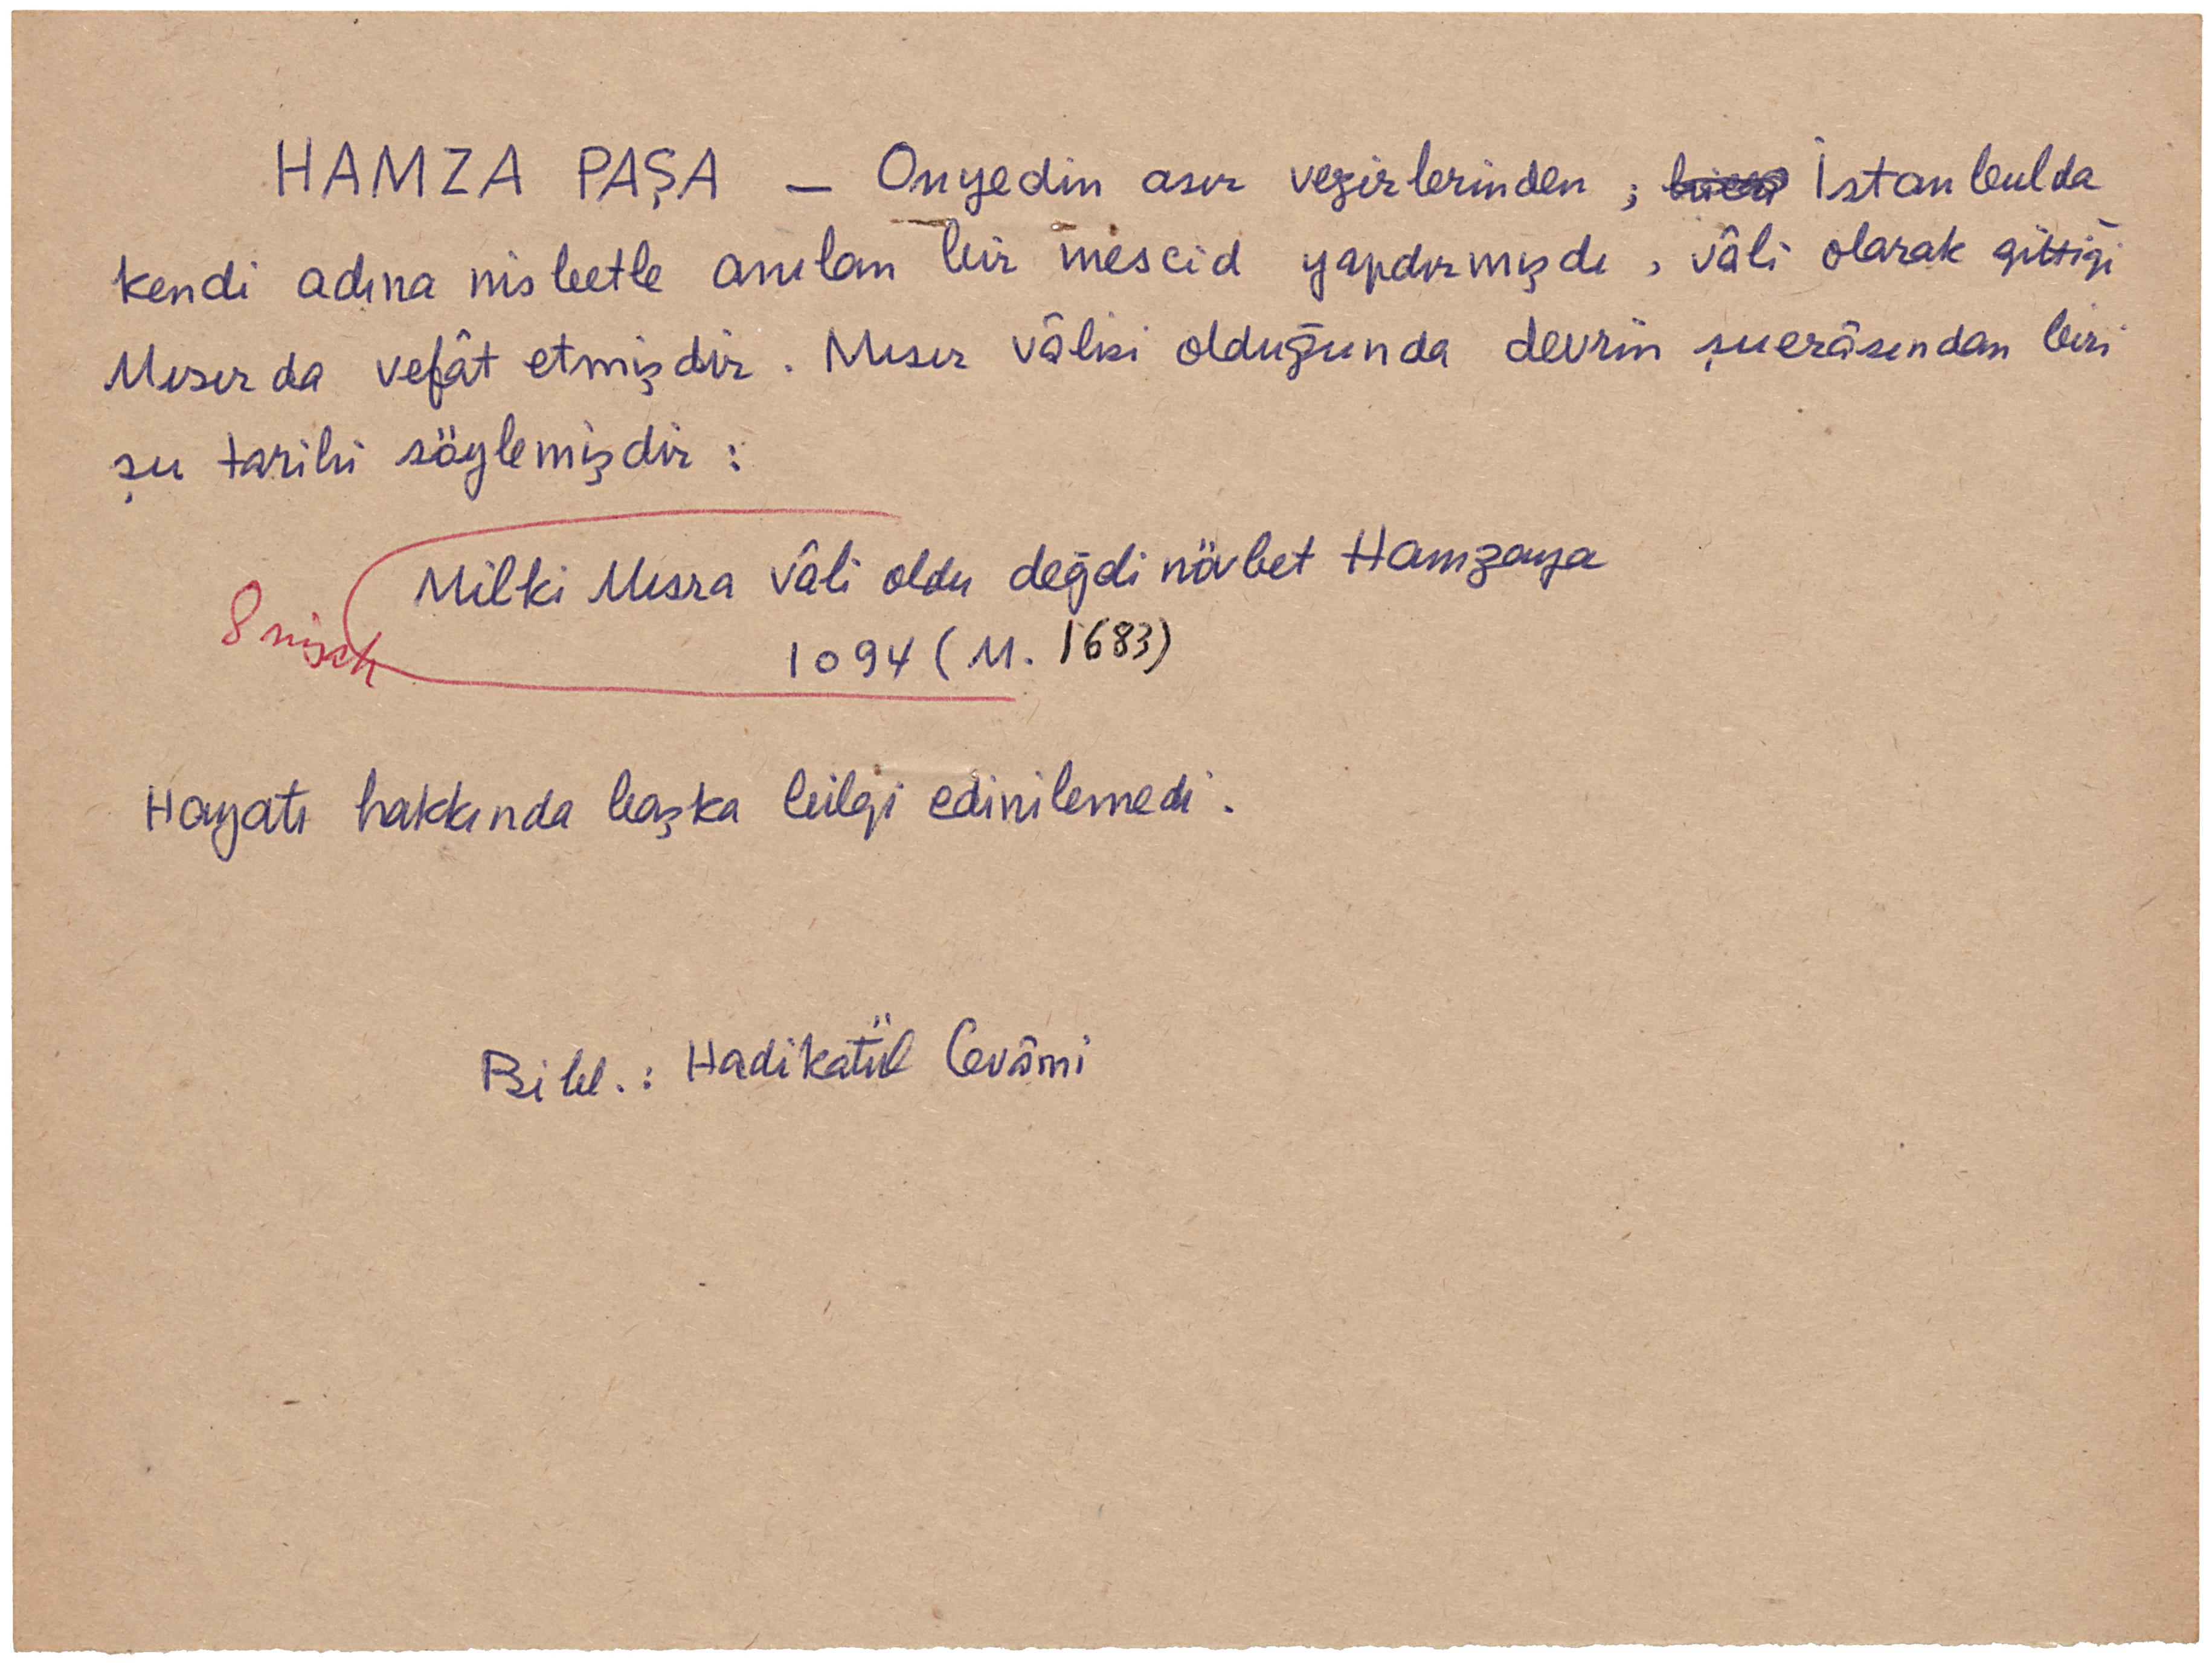 HAMZA PAŞA — Onyedin asır vezirlerinden ; İstanbulda
kendi adına nisbetle anılan bir mescid yapdırmışdı, vâli olarak gittiği
Mısırda vefât etmişdir. Mısır vâlisi olduğunda devrin şuerâsından biri
şu tarihi söylemişdir :
Milki Mısra vâli oldu değdi növbet Hamzaya
1094 (M. 1683)
8
Hayatı hakkında başka bilgi edinilemedi.
Bibl. : Hadikatül Cevâmi